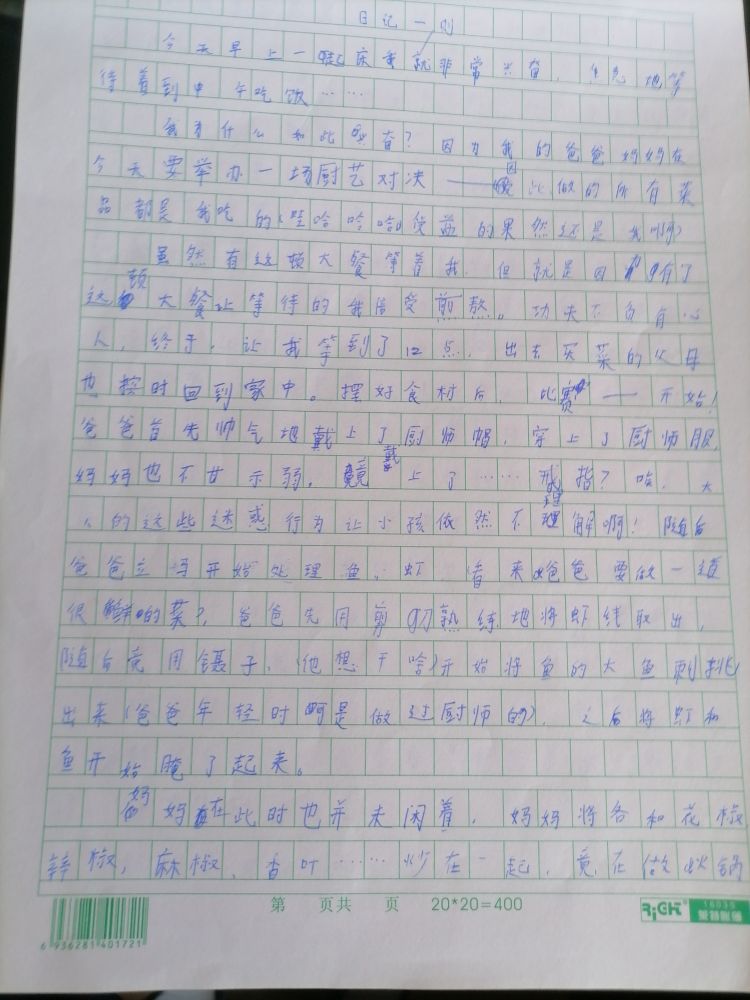 日记一则
今天早上一起床我就非常兴奋，焦急地等
待着到中午吃饭……
我为什么如此兴奋？因为我的爸爸妈妈在
今天要举办一场厨艺对决——因此做的所有菜
品都是我吃的（哇哈哈哈）受益的果然还是我啊
虽然有这顿大餐等着我，但就是因为有了
这顿大餐让等待的我倍受煎熬。功夫不负有心
人，终于，让我等到了12点，出去买菜的父母
也按时回到家中。摆好食材后，比赛——开始！
爸爸首先帅气地戴上了厨师帽，穿上了厨师服，
妈妈也不甘示弱。竟戴上了……戒指？哈，大
人的这些迷惑行为让小孩依然不理解啊！随后
爸爸立马开始处理鱼、虾 看来爸爸要做一道
很鲜的菜？爸爸先用剪刀熟练地将虾线取出，
随后竟用镊子，（他想干啥）开始将鱼的大鱼刺挑
出来（爸爸年轻时可是做过厨师的），之后将虾和
鱼开始腌了起来。
妈妈在此时也并未闲着，妈妈将各和花椒
辣椒，麻椒、香叶……炒在一起，竟在做火锅
第 页共 页 20*20=400
RiGH 16035
6 936281 401721